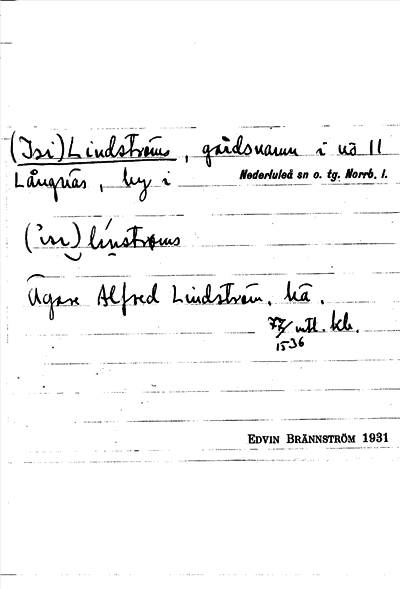 (Isi)Lindströms, gårdsnamn i nö 11
Långnäs, by i Nederluleå sn o. tg. Norrb. l.
('isi) línströms
Ägare Alfred Lindström, hä.
77/1536 mtl. kb.
EDVIN BRÄNNSTRÖM 1931